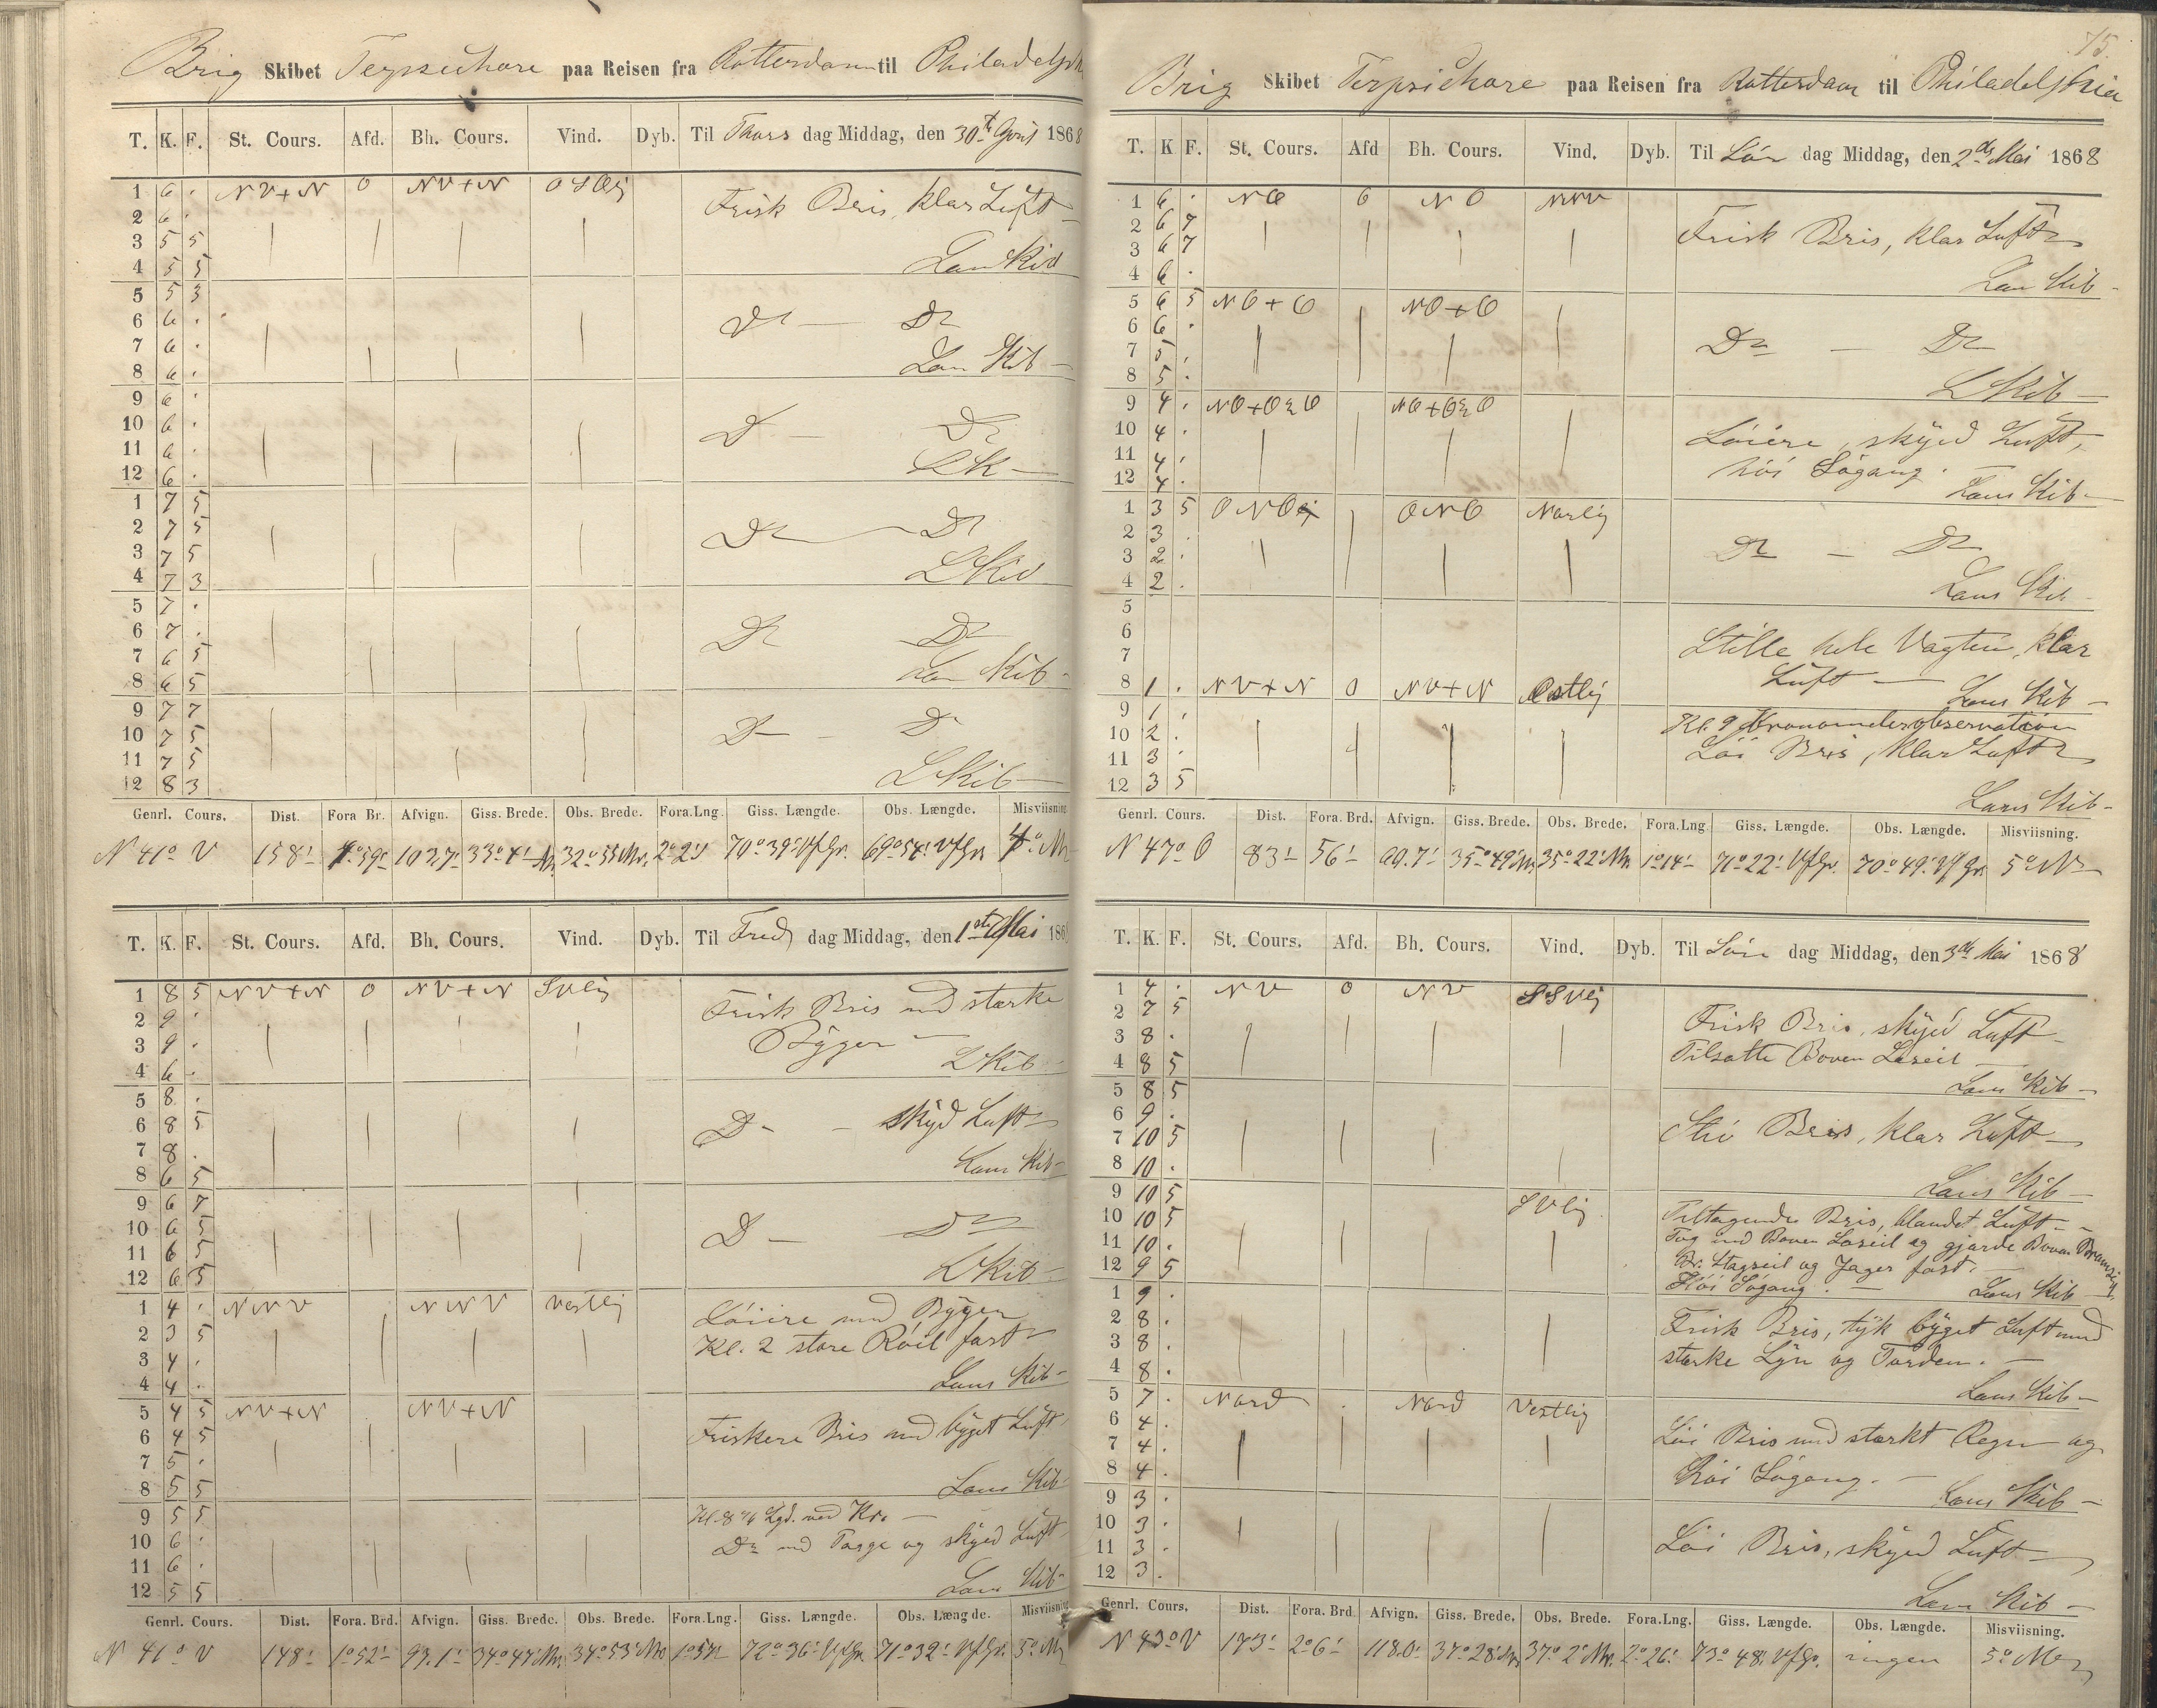 Brig Skibet Terpsichore paa Reisen fra Rotterdam til Philadelph
T. K. F. St. Cours. Afd. Bh. Cours. Vind. Dyb. Til Thors dag Middag, den 30te April 1868
1 6 . NV+N 0 NV+N OSOlig Frisk Bris, klar Luft
2 6 .
3 5 5
4 5 5 Lans Kib
5 5 3
6 6 . Do — Do
7 6 .
8 6 . Lans Kib
9 6 .
10 6 . Do — Do
11 6 . LK
12 6 .
1 7 5
2 7 5 Do — Do
3 7 5
4 7 3 LKib
5 7 .
6 7 . Do Do
7 6 5
8 6 5 Lans Kib
9 7 7
10 7 5 Do — Do
11 7 5
12 8 3 LKib
Genrl. Cours. Dist. Fora Br. Afvign. Giss. Brede. Obs. Brede. Fora.Lng. Giss. Længde. Obs. Længde. Misviisning
N 41° V 158' 1°59' 103,7' 33°4' Nr. 32°55' Nr. 2°2' 70°39' VfGr. 69°54' VfGr. 4° Nr
T. K. F. St. Cours. Afd. Bh. Cours. Vind. Dyb. Til Fred dag Middag, den 1ste Mai 186
1 8 5 NV+N 0 NV+N SVlig Frisk Bris med stærke
2 9 . Byger
3 9 .
4 6 . LKib
5 8 .
6 8 5 Do — skyd Luft
7 8 .
8 6 5 Lans Kib
9 6 7
10 6 5 Do — Do
11 6 5
12 6 5 LKib
1 4 . NNV NNV Vestlig Löiere med Byger
2 3 5 Kl. 2 store Röil fast
3 4 .
4 4 . Lans Kib
5 4 5 NV+N NV+N
6 4 5 Friskere Bris med byget Luft
7 5 .
8 5 5 Lans Kib
9 5 5 Kl. 8 Lgd. ved Kro.
10 6 . Do med Taage og skyed Luft
11 6 .
12 5 5 Lans Kib
Genrl. Cours. Dist. Fora. Brd. Afvign. Giss. Brede. Obs. Brede. Fora.Lng. Giss. Længde. Obs. Længde. Misviisning
N 41° V 148' 1°52' 97.1' 34°47' Nr. 34°53' Nr 1°57' 72°36' VfGr. 71°32' VfGr. 5° Nr
75.
Brig Skibet Terpsichore paa Reisen fra Rotterdam til Philadelphia
T. K F. St. Cours. Afd Bh. Cours. Vind. Dyb. Til Lör dag Middag, den 2de Mai 1868
1 6 . NO 0 NO NNV
2 6 7 Frisk Bris, klar Luft
3 6 7
4 6 . Lans Kib
5 6 5 NO+O NO+O
6 6 . Do — Do
7 5 .
8 5 . LKib
9 4 . NO+O½O NO+O½O
10 4 . Löiere, skyed Luft,
11 4 . höi Sögang.
12 4 . Lans Kib
1 3 5 ONO ONO Norlig
2 3 . Do — Do
3 2 .
4 2 . Lans Kib
5
6 Stille hele Vagten, klar
7 Luft
8 1 . NV+N 0 NV+N Ostlig Lans Kib
9 1 . Kl. 9 Kronometerobservation
10 2 . Löi Bris, klar Luft
11 3 .
12 3 5 Lans Kib
Genrl. Cours. Dist. Fora. Brd. Afvign. Giss. Brede. Obs. Brede. Fora.Lng. Giss. Længde. Obs. Længde. Misviisning.
N 47° O 83' 56' 60.7' 35°49' Nr. 35°22' Nr. 1°14' 71°22' VfGr. 70°49' VfGr. 5° Nr
T. K. F. St. Cours. Afd. Bh. Cours. Vind. Dyb. Til Sön dag Middag, den 3de Mai 1868
1 4 . NV 0 NV SSVlig
2 7 5 Frisk Bris, skyed Luft
3 8 . Tilsatte Boven Læseil
4 8 5 Lans Kib
5 8 5
6 9 . Stiv Bris, klar Luft
7 10 5
8 10 . Lans Kib
9 10 5 SVlig
10 10 5 Tiltagende Bris, blandet Luft
11 10 . Tog ind Boven Læseil og gjorde Boven Bramseil,
12 9 5 Br. Stagseil og Jager fast.
1 9 . Höi Sögang. Lans Kib
2 8 . Frisk Bris, tyk byget Luft med
3 8 . stærke Lyn og Torden.
4 8 . Lans Kib
5 7 . Nord . Nord Vestlig
6 4 . Löi Bris med stærkt Regn og
7 4 . höi Sögang.
8 4 . Lans Kib
9 3 .
10 3 . Löi Bris, skyed Luft
11 3 .
12 3 . Lans Kib
Genrl. Cours. Dist. Fora. Brd Afvign. Giss. Brede. Obs. Brede. Fora.Lng. Giss. Længde. Obs. Længde. Misviisning.
N 43° V 173' 2°6' 118.0' 37°28' Nr. 37°2' Nr. 2°26' 73°48' VfGr. ingen 5° Nr